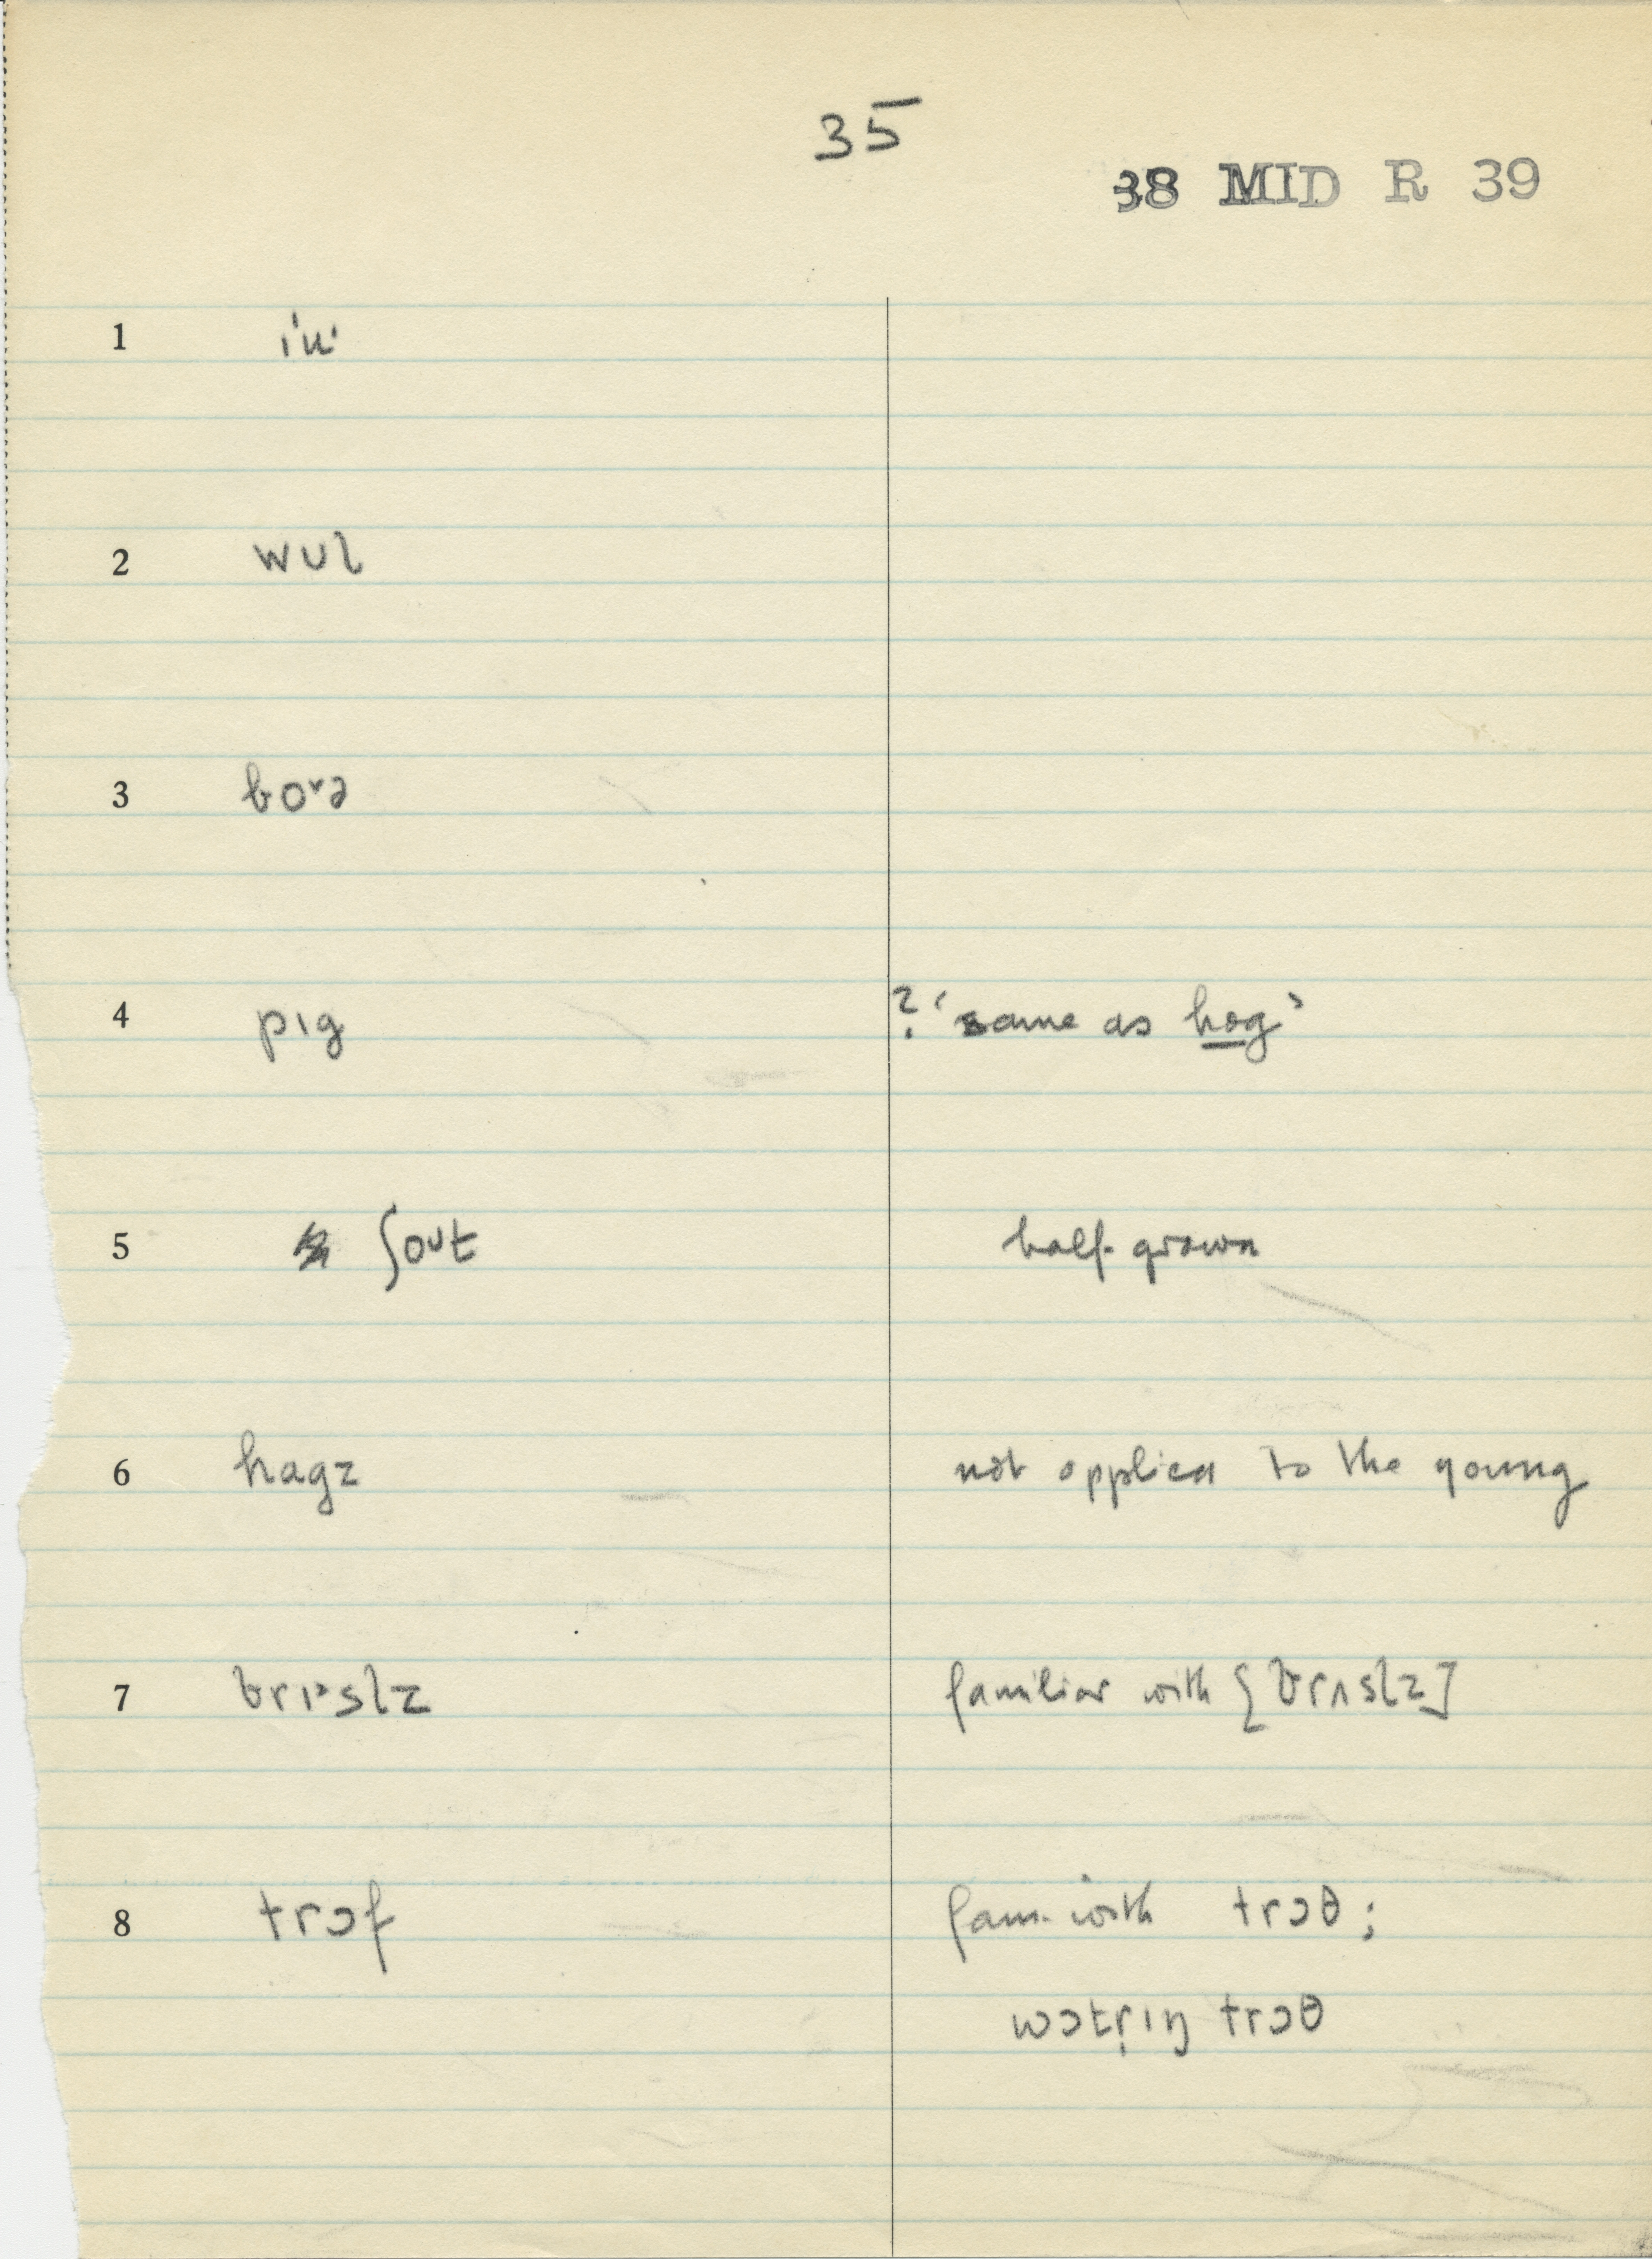 35
38 MID R 39
1
2 wʊl
3 boᵛə
4 pɪg ? 'same as hog'
5 ʃoʊt half-grown
6 hagz not applied to the young
7 brɪᵊslz familiar with [brʌslz]
8 trɔf fam. with trɔθ;
wɔtr̩ɪŋ trɔθ